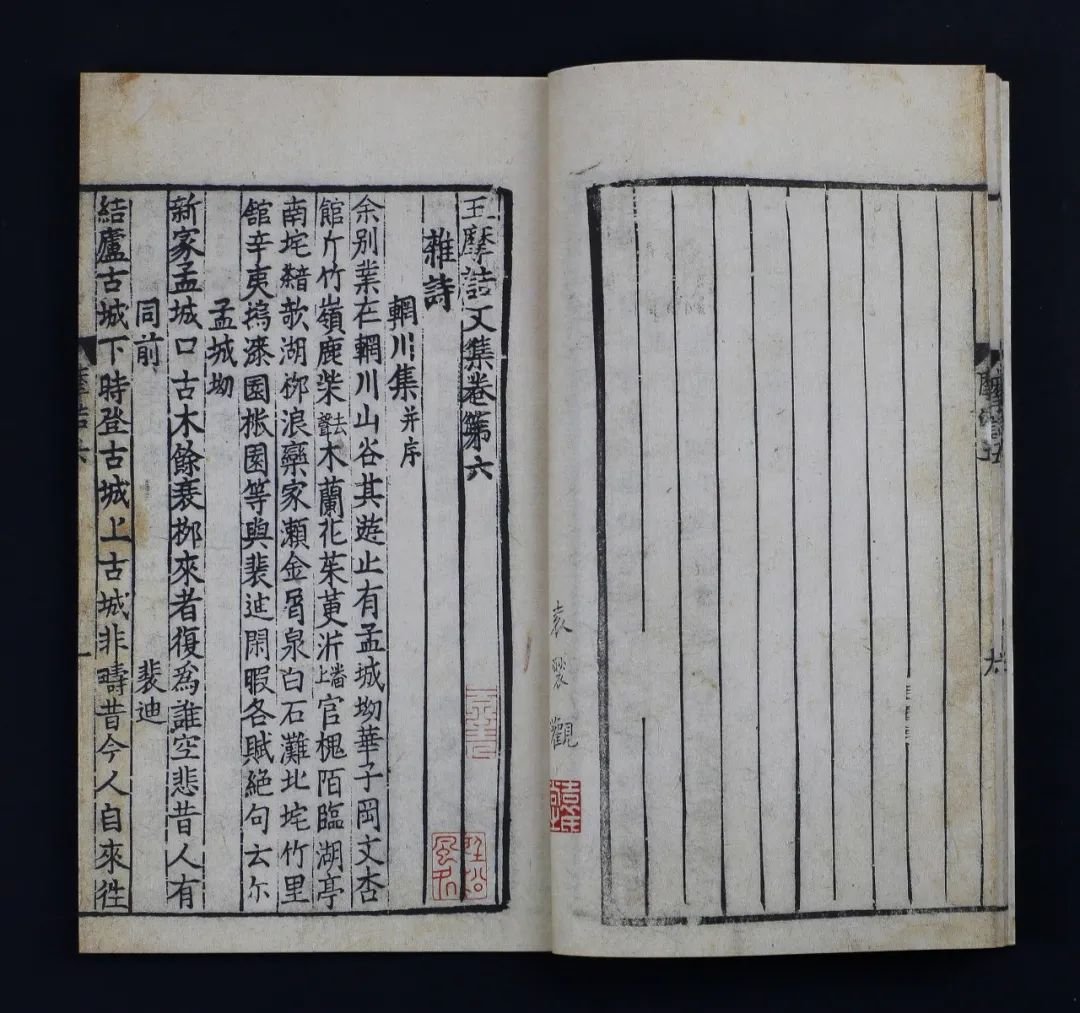 袁褧觀
王摩詰文集卷第六
雜詩
輞川集并序
余別業在輞川山谷其遊止有孟城坳華子岡文杏
館斤竹嶺鹿柴去聲木蘭花茱萸沜潘上官槐陌臨湖亭
南垞欹湖栁浪欒家瀬金屑泉白石灘北垞竹里
舘辛夷塢漆園椒園等與裴迪閑暇各賦絕句云尒
孟城坳
新家孟城口古木餘衰栁來者復為誰空悲昔人有
同前 裴迪
結廬古城下時登古城上古城非疇昔今人自來徃